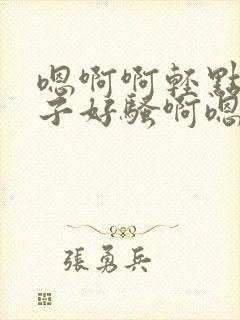 嗯啊啊轻點
子好騷啊嗯
張勇兵